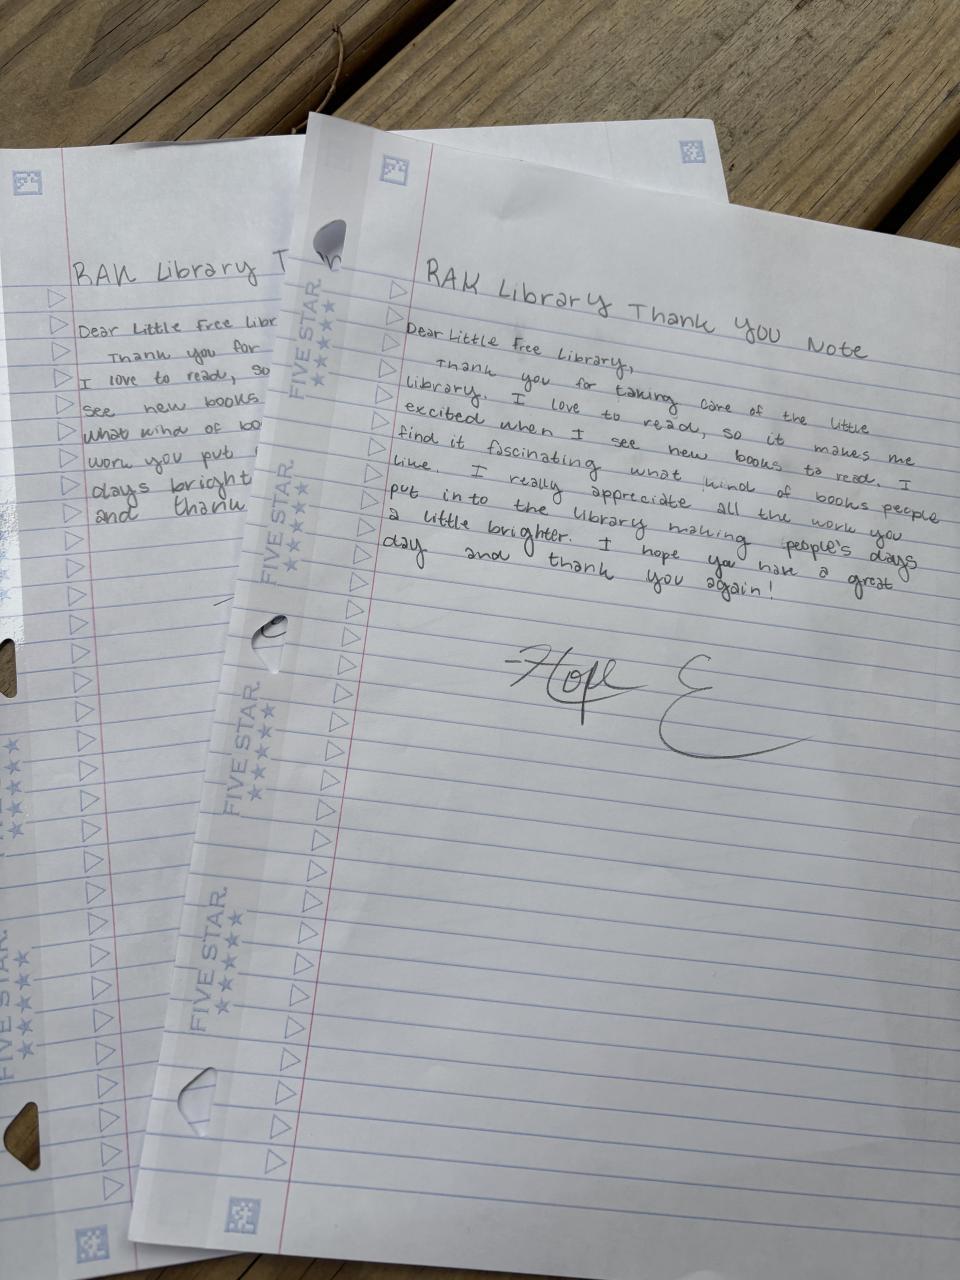 RAK Library T
Dear Little Free Libr
Thank you for
I love to read, so
see new books
what kind of bo
work you put
days bright
and thank
FIVE STAR.
FIVE STAR
RAK Library Thank you Note
Dear Little Free Library,
Thank you for taking care of the little
library. I love to read, so it makes me
excited when I see new books to read. I
find it fascinating what kind of books people
like. I really appreciate all the work you
put in to the library making people's days
a little brighter. I hope you have a great
day and thank you again!
-Hope E
FIVE STAR.
FIVE STAR.
FIVE STAR.
FIVE STAR.